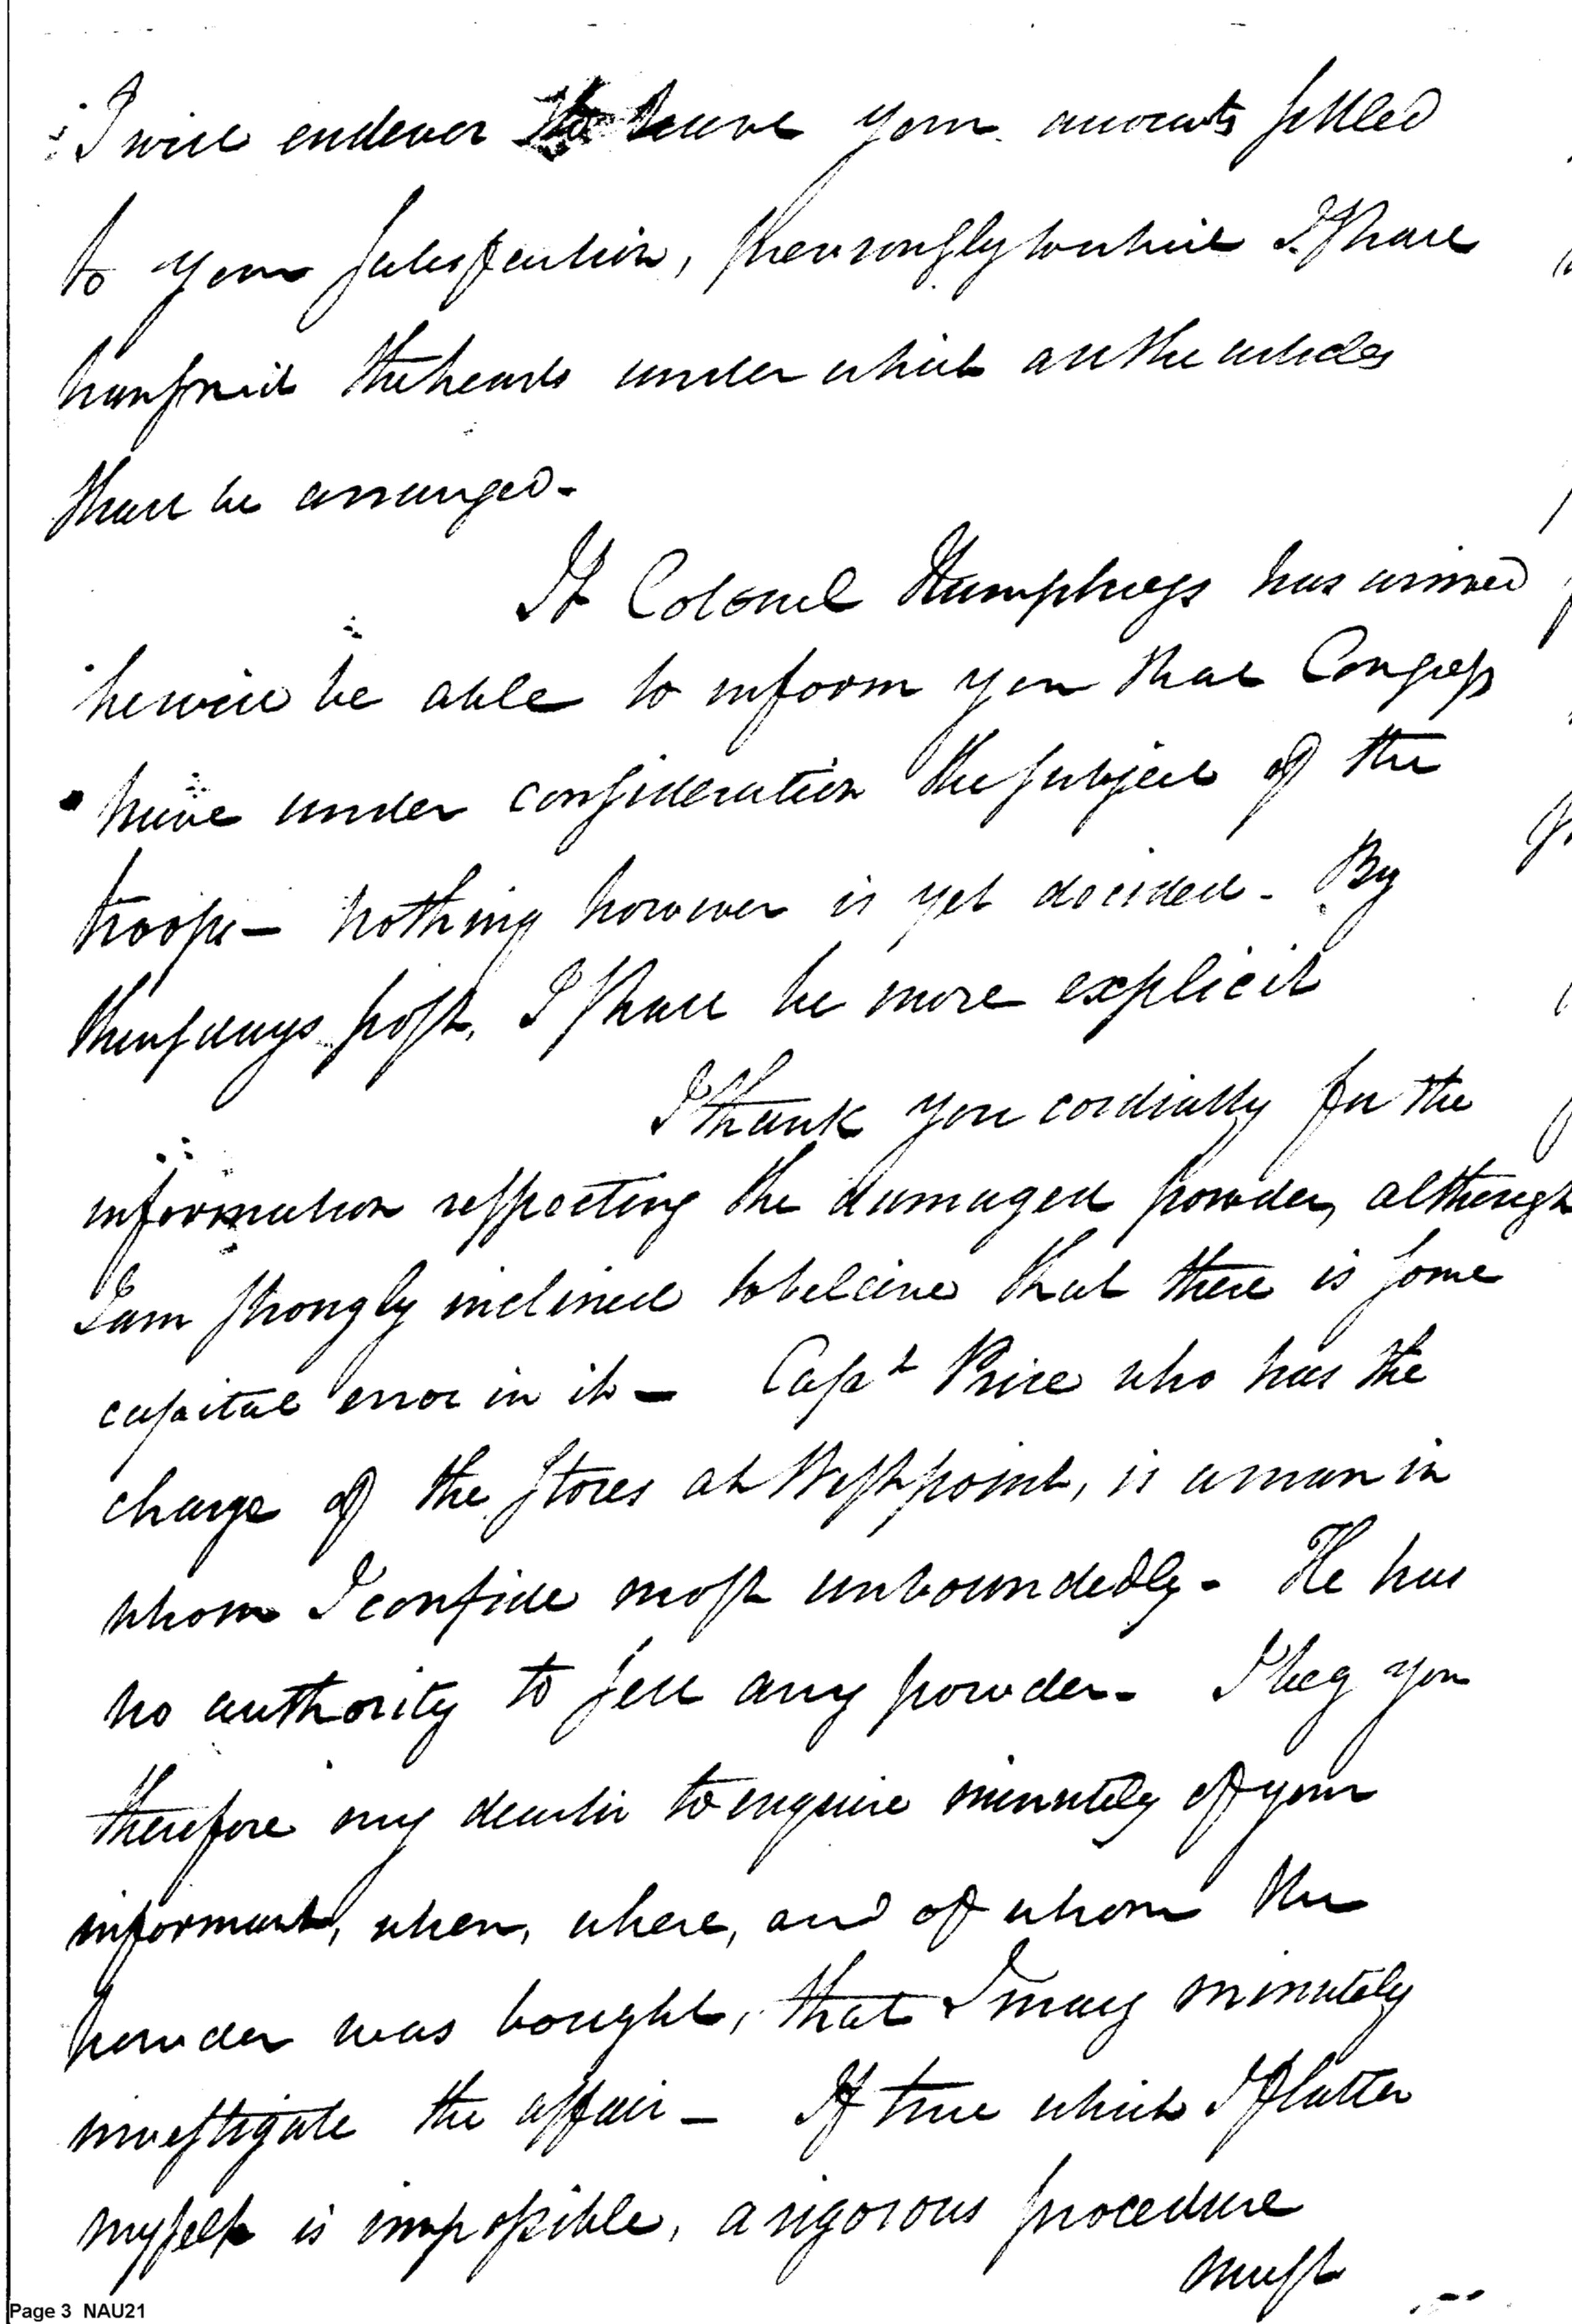 I will endevor to have your accounts settled
to your satisfaction, thursday's I shall
transmit the heads under which all the articles
shall be arranged-
If Colonel Humphreys has arrived
he will be able to inform you that Congress
have under consideration the subject of the
troops— nothing however is yet decided- By
thursdays post, I shall be more explicit
I thank you cordially for the
information respecting the damaged powder, although
I am strongly inclined to beleive that there is some
capital error in it— Capt Price who has the
charge of the stores at Westpoint, is a man in
whom I confide most unboundedly- He has
no authority to sell any powder- I beg you
therefore my dear sir to enquire minutely of your
informant, when, where, and of whom the
powder was bought, that I may minutely
investigate the affair— If true which I flatter
myself is impossible, a rigorous procedure
must
Page 3 NAU21